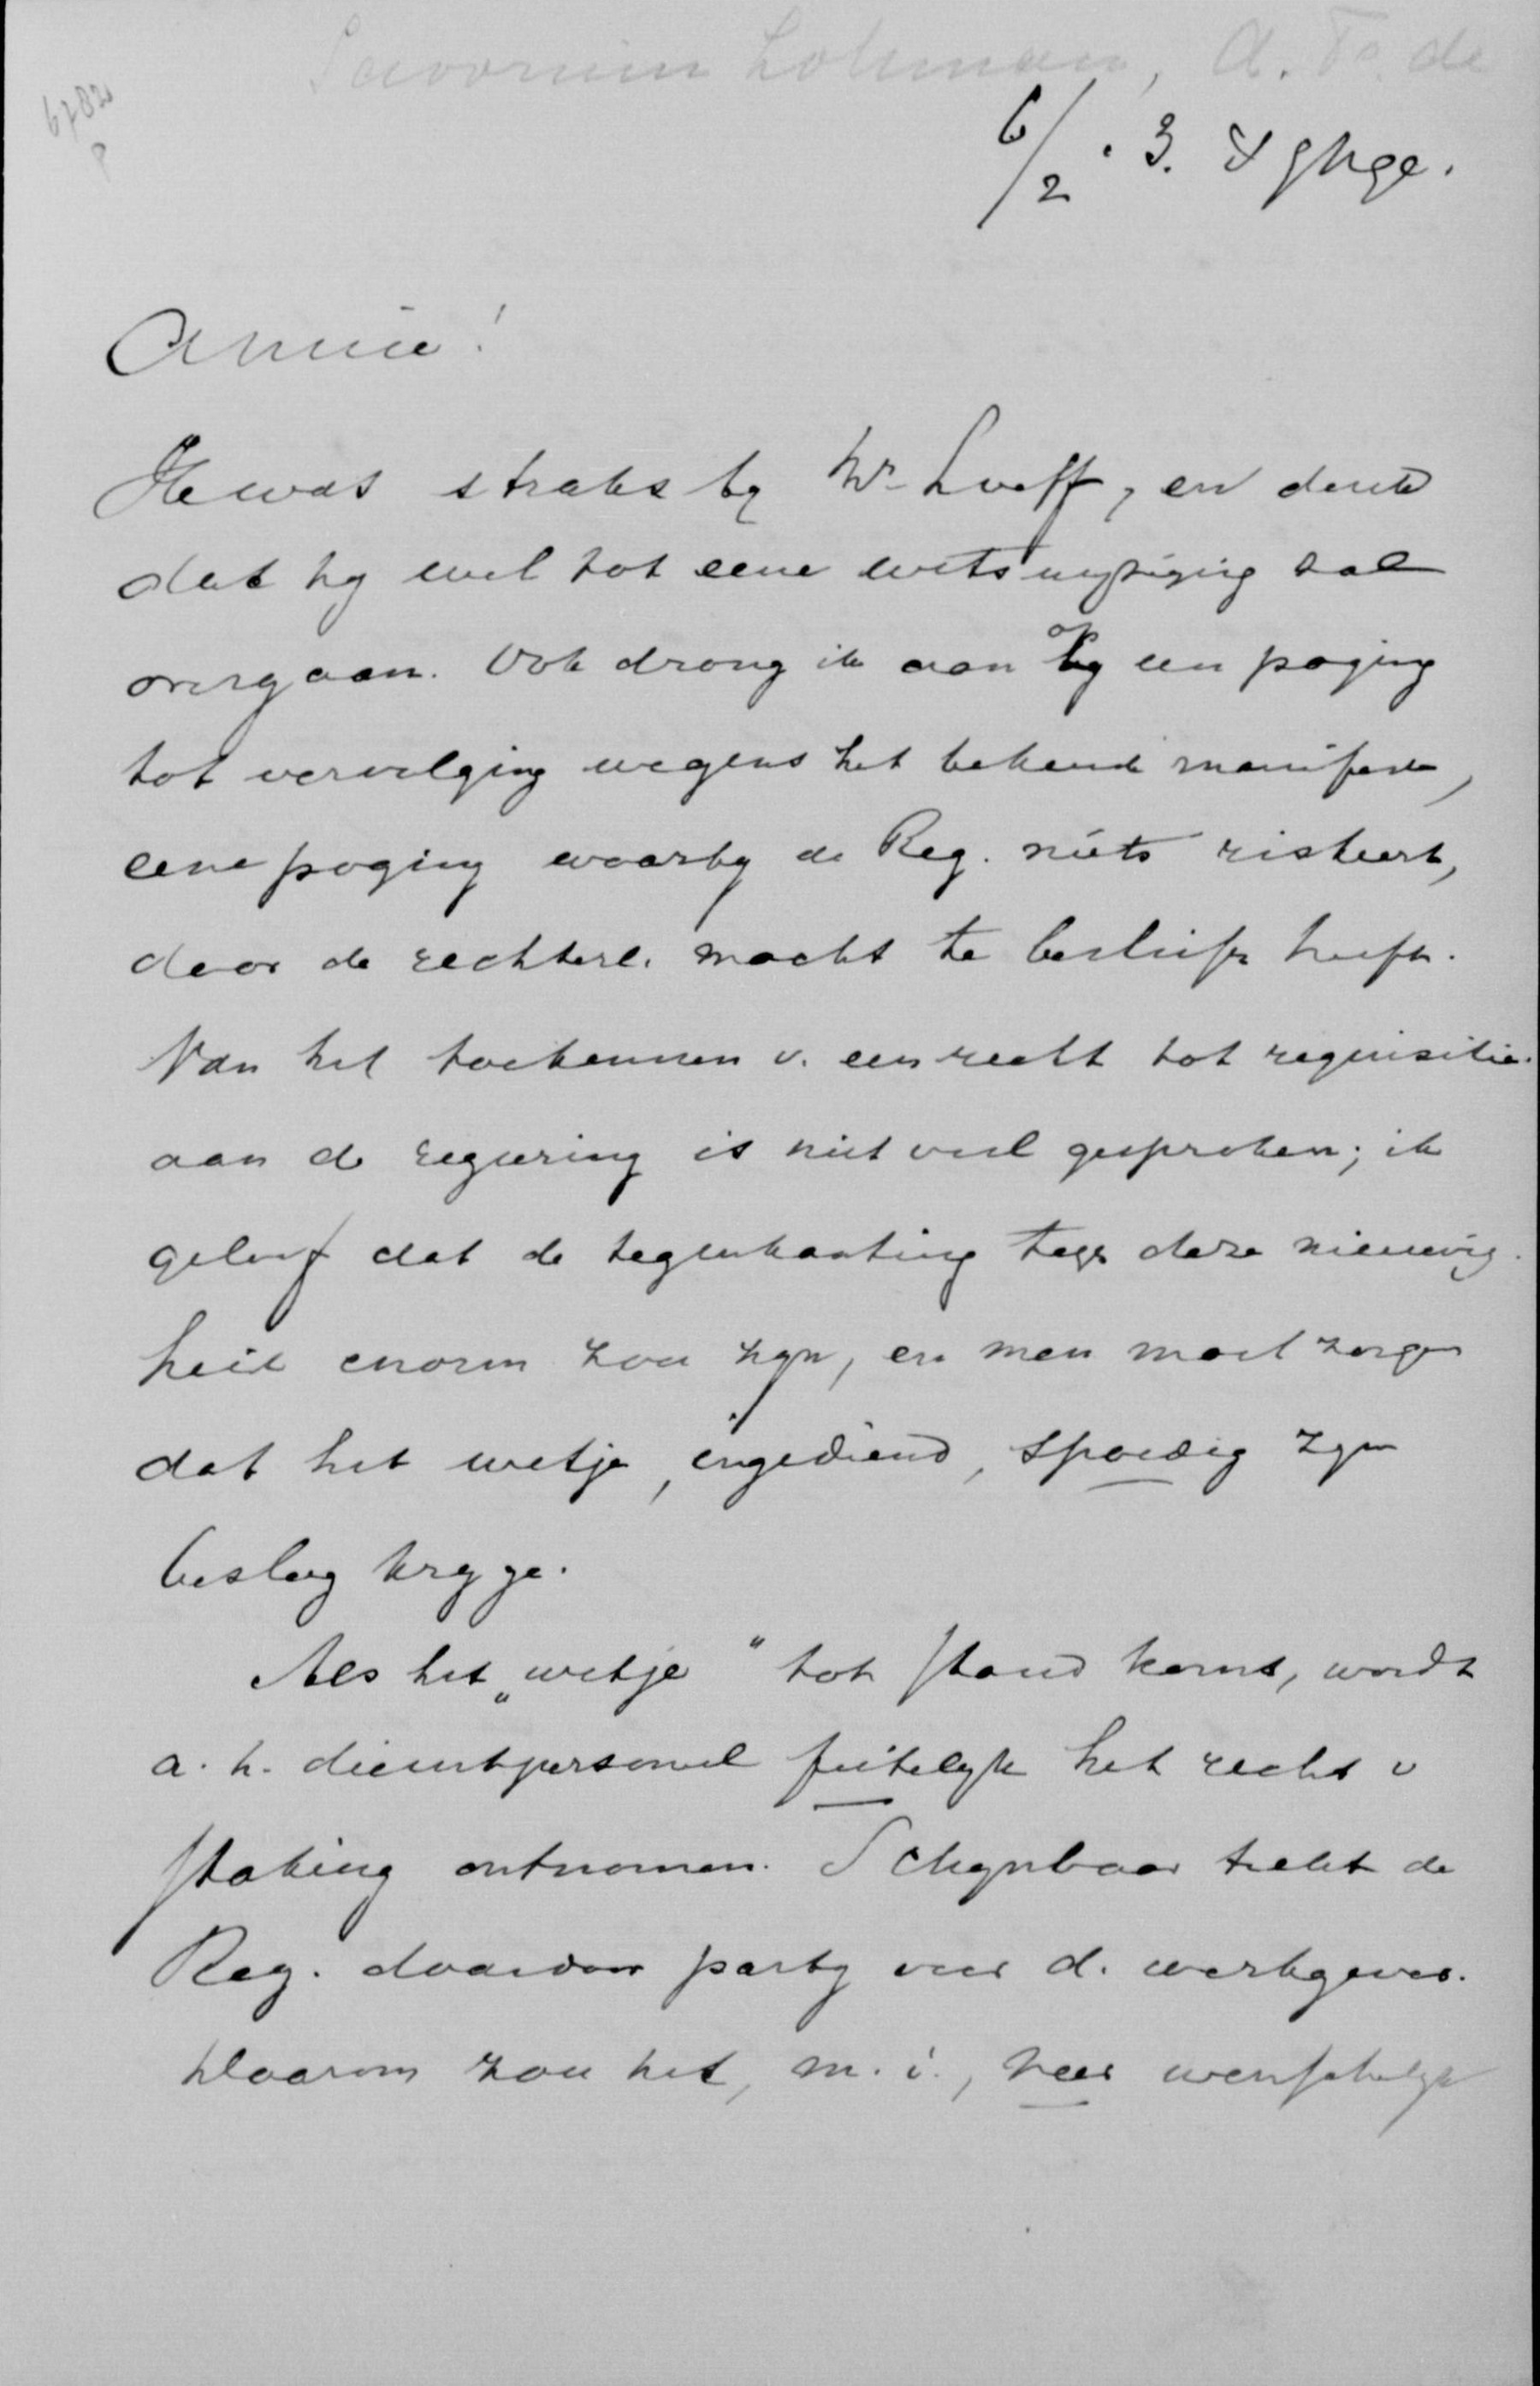 Savornin Lohman, A. F. de
6782
P
6/2 . 3. 's Ghge.
Amice!
Ik was straks by Mr Loeff, en denk
dat hy wel tot eene wetswyziging zal
overgaan. Ook drong ik aan op een poging
tot vervolging wegens het bekende manifest,
eene poging waarby de Reg. niets riskeert,
daar de rechterl. macht te beslissen heeft.
Van het toekennen v. een recht tot requisitie
aan de regeering is niet veel gesproken; ik
geloof dat de tegenkanting tegen deze nieuwig-
heid enorm zou zyn, en men moet zorgen
dat het wetje, ingediend, spoedig zyn
beslag kryge.
Als het „wetje" tot stand komt, wordt
a. h. dienstpersoneel feitelyk het recht v
staking ontnomen. Schynbaar trekt de
Reg. daardoor party voor d. werkgever.
Daarom zou het, m. i., zeer wenschelyk